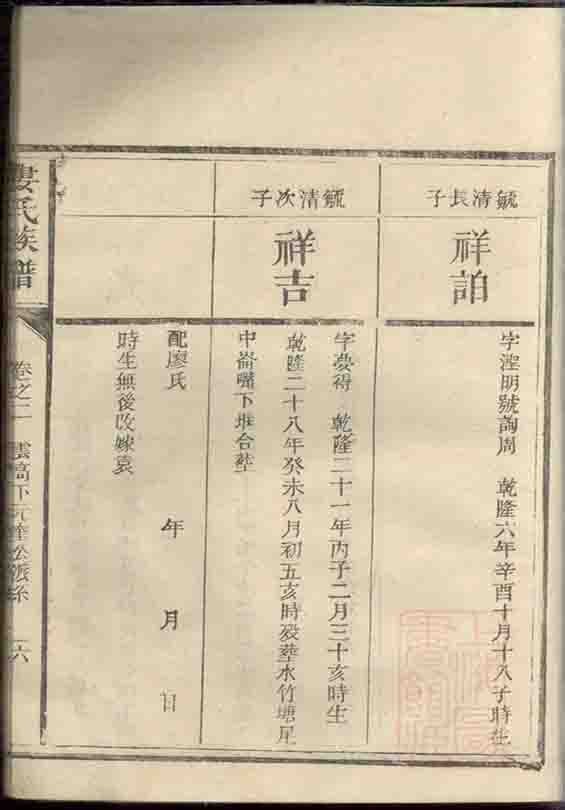 毓清長子
祥詒
字溼明號詢周 乾隆六年辛酉十月十八子時生
毓清次子
祥吉
字夢得 乾隆二十一年丙子二月三十亥時生
乾隆二十八年癸未八月初五亥時殁葬水竹塘尾
中崙嘴下堆合塟
配廖氏 年 月 日
時生無後改嫁袁
婁氏族譜
卷之二 雲高下 派系 六